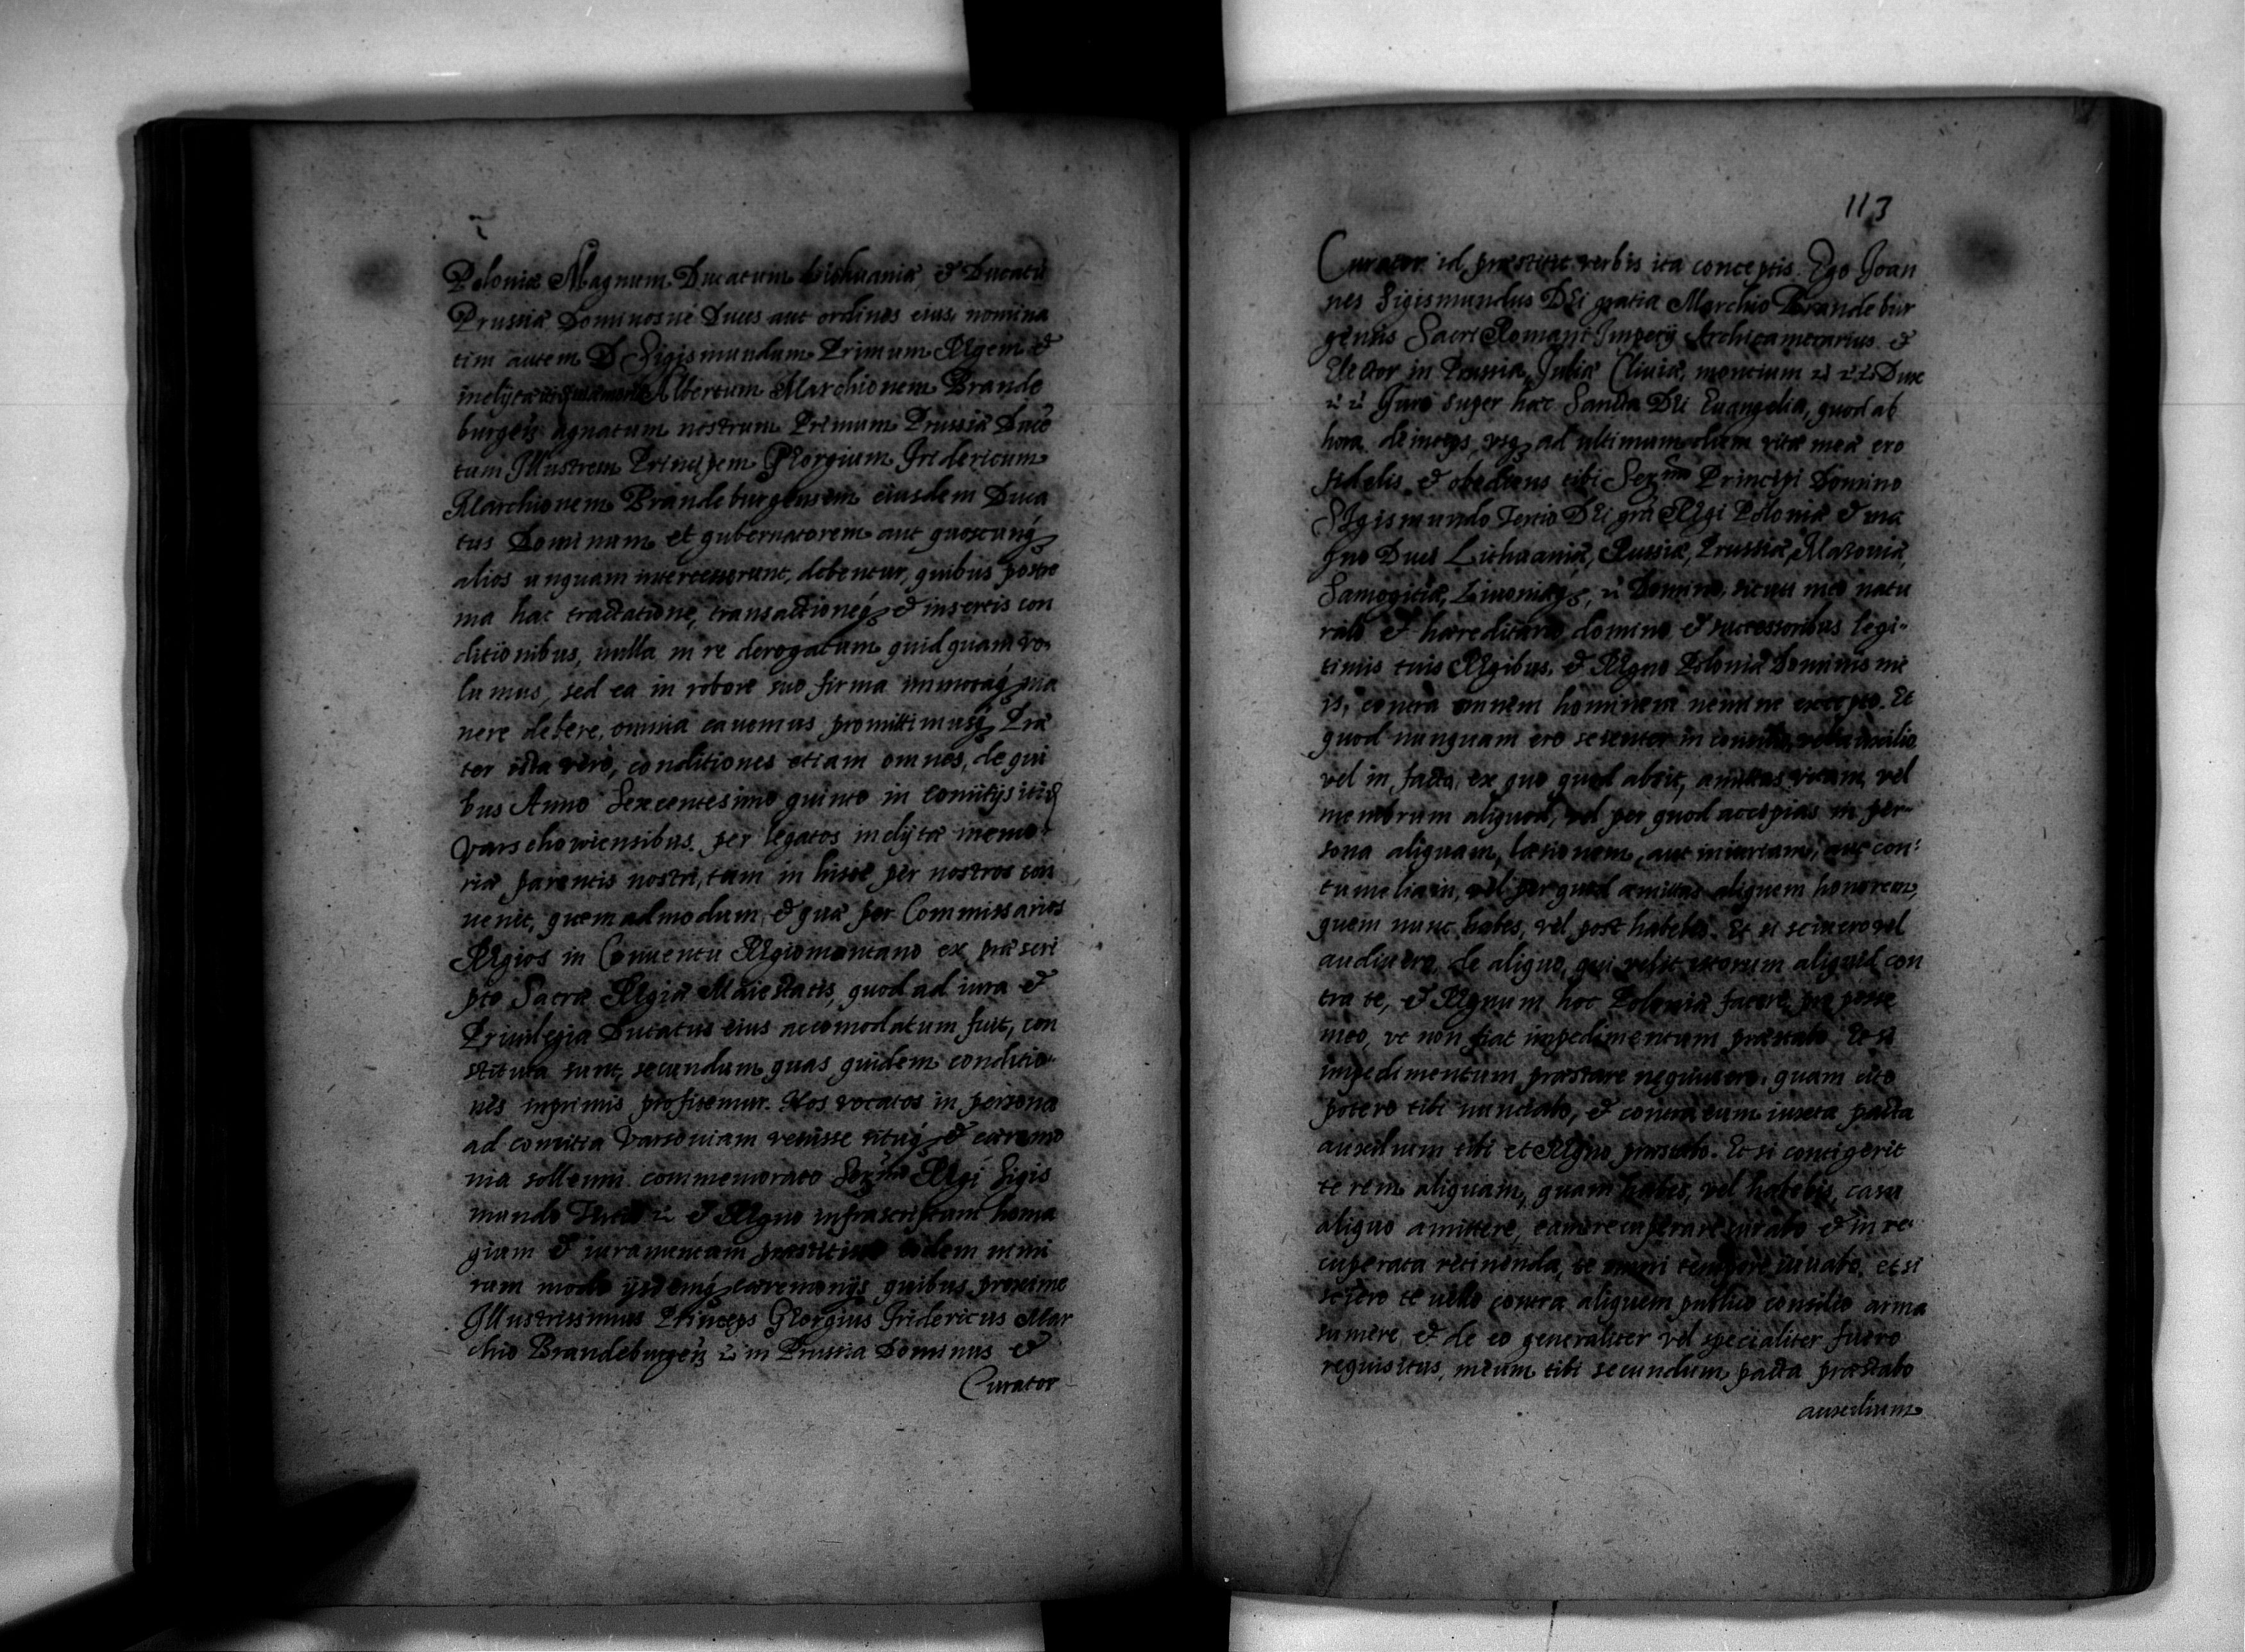 Poloniæ Magnum Ducatum Lithuaniæ, & Ducatū
Prussiæ Dominosue Duces aut ordines eius, nomina
tim autem D Sigismundum Primum Regem &
inclytæ Albertum Marchionem Brande
burgēn agnatum nostrum Primum Prussiæ Ducē
tum Illustrem Principem Georgium Fridericum
Marchionem Brandeburgensem eiusdem Duca
tus Dominum et gubernatorem aut quoscunq́
alios unquam intercesserunt, debentur, quibus postre
ma hac tractatione, transactioneq́ & insertis con
ditionibus, nulla in re derogatum quidquam vo-
lumus, sed ea in robore suo firma immotaq́ ma
nere debere, omnia cauemus promittimusq́ Præ
ter ista vero, conditiones etiam omnes, de qui
bus Anno Sexcentesimo quinto in Comitijs
Varschowiensibus per legatos inclytæ memo-
riæ parentis nostri, tum in hisce per nostros con
uenit, quemadmodum & quæ per Commissarios
Regios in Conuentu Regiomontano ex præscri
pto Sacræ Regiæ Maiestatis, quod ad iura &
Priuilegia Ducatus eius accomodatum fuit, con
stituta sunt, secundum quas quidem conditio-
nes inprimis profitemur. Nos vocatos in persona
ad comitia Varsouiam venisse rituq́ & cæremo
nia sollenni commemorato Serᵐᵒ Regi Sigis
mundo Tertio & Regno infrascriptam homa
gium & iuramentum eodem nimi
rum modo ijsdemq́ cæremonijs quibus proxime
Illustrissimus Princeps Georgius Fridericus Mar
chio Brandeburgēn in Prussia Dominus &
Curator
113
Curator id præstitit verbis ita conceptis. Ego Joan
nes Sigismundus DEi gratia Marchio Brandebur
gensis Sacri Romani Imperij Archicamerarius &
Elector in Prussia, Juliæ Cliuiæ, montium Dux
Juro super hæc Sancta DEi Euangelia, quod ab
hora deinceps, vsq́ ad ultimum diem vitæ meæ ero
fidelis & obediens tibi Serᵐᵒ Principi Domino
SIgismundo Tertio DEi grā REgi Poloniæ & ma
gno Duci Lithuaniæ, Russiæ, Prussiæ, Masouiæ,
Samogitiæ, Liuoniæq́, Domino, sicuti meo natu
rali & hæreditario domino & successoribus legi-
timis tuis REgibus, & REgno Poloniæ Dominis me
is, contra omnem hominem nemine excepto. Et
quod nunquam ero scienter in consilio, vel auxilio
vel in facto, ex quo quod absit, amittas vitam, vel
membrum aliquod, vel per quod accipias in per-
sona aliquam læsionem, aut iniuriam, aut con-
tumeliam, vel per quod amittas aliquem honorem,
quem nunc habes, vel post habebis. Et si sciuero vel
audiuero, de aliquo, qui velit istorum aliquid con
tra te, & REgnum hoc Poloniæ facere, pro posse
meo, vt non fiat impedimentum præstabo. Et si
impedimentum præstare nequiuero, quam cito
potero tibi nunciabo, & contra eum iuxta pacta
auxilium tibi et REgno præstabo. Et si contigerit
te rem aliquam, quam habes, vel habebis, casu
aliquo amittere, eam recuperare curabo & in re-
cuperata retinenda, te omni tempore iuuabo, et si
sciero te velle contra aliquem publico consilio arma
sumere, & de eo generaliter vel specialiter fuero
requisitus, meum tibi secundum pacta præstabo
auxilium